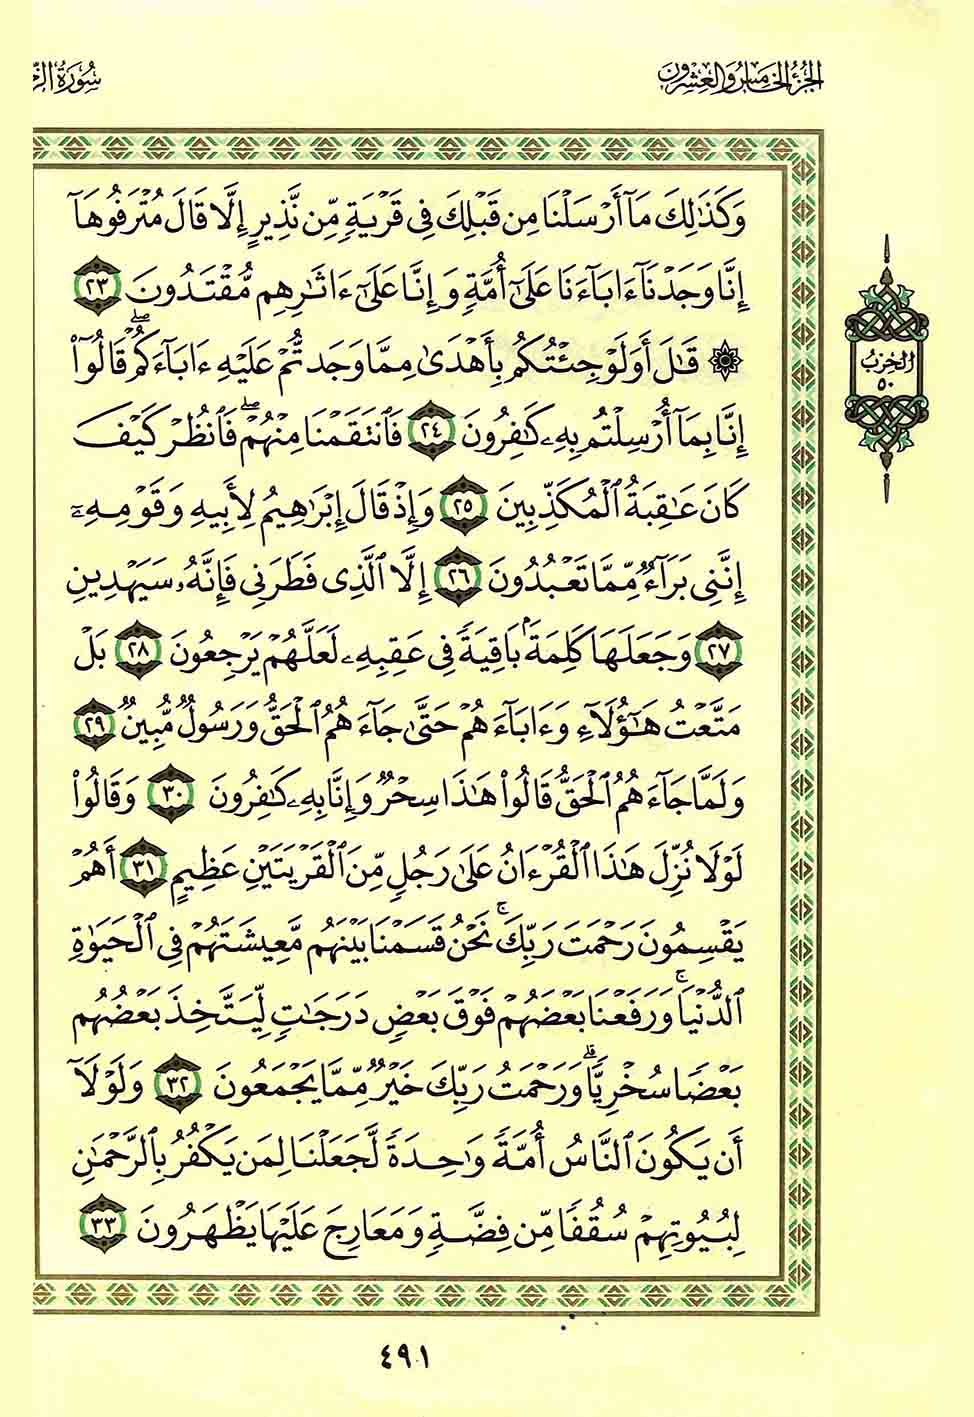 الجزء الخامس والعشرون
سورة الز
وَكَذَٰلِكَ مَآ أَرْسَلْنَا مِن قَبْلِكَ فِى قَرْيَةٍ مِّن نَّذِيرٍ إِلَّا قَالَ مُتْرَفُوهَآ
إِنَّا وَجَدْنَآ ءَابَآءَنَا عَلَىٰٓ أُمَّةٍ وَإِنَّا عَلَىٰٓ ءَاثَٰرِهِم مُّقْتَدُونَ ٢٣
۞ قَٰلَ أَوَلَوْ جِئْتُكُم بِأَهْدَىٰ مِمَّا وَجَدتُّمْ عَلَيْهِ ءَابَآءَكُمْ ۖ قَالُوٓا۟
إِنَّا بِمَآ أُرْسِلْتُم بِهِۦ كَٰفِرُونَ ٢٤ فَٱنتَقَمْنَا مِنْهُمْ ۖ فَٱنظُرْ كَيْفَ
كَانَ عَٰقِبَةُ ٱلْمُكَذِّبِينَ ٢٥ وَإِذْ قَالَ إِبْرَٰهِيمُ لِأَبِيهِ وَقَوْمِهِۦٓ
إِنَّنِى بَرَآءٌ مِّمَّا تَعْبُدُونَ ٢٦ إِلَّا ٱلَّذِى فَطَرَنِى فَإِنَّهُۥ سَيَهْدِينِ
٢٧ وَجَعَلَهَا كَلِمَةًۢ بَاقِيَةً فِى عَقِبِهِۦ لَعَلَّهُمْ يَرْجِعُونَ ٢٨ بَلْ
مَتَّعْتُ هَٰٓؤُلَآءِ وَءَابَآءَهُمْ حَتَّىٰ جَآءَهُمُ ٱلْحَقُّ وَرَسُولٌ مُّبِينٌ ٢٩
وَلَمَّا جَآءَهُمُ ٱلْحَقُّ قَالُوا۟ هَٰذَا سِحْرٌ وَإِنَّا بِهِۦ كَٰفِرُونَ ٣٠ وَقَالُوا۟
لَوْلَا نُزِّلَ هَٰذَا ٱلْقُرْءَانُ عَلَىٰ رَجُلٍ مِّنَ ٱلْقَرْيَتَيْنِ عَظِيمٍ ٣١ أَهُمْ
يَقْسِمُونَ رَحْمَتَ رَبِّكَ ۚ نَحْنُ قَسَمْنَا بَيْنَهُم مَّعِيشَتَهُمْ فِى ٱلْحَيَوٰةِ
ٱلدُّنْيَا ۚ وَرَفَعْنَا بَعْضَهُمْ فَوْقَ بَعْضٍ دَرَجَٰتٍ لِّيَتَّخِذَ بَعْضُهُم
بَعْضًا سُخْرِيًّا ۗ وَرَحْمَتُ رَبِّكَ خَيْرٌ مِّمَّا يَجْمَعُونَ ٣٢ وَلَوْلَآ
أَن يَكُونَ ٱلنَّاسُ أُمَّةً وَٰحِدَةً لَّجَعَلْنَا لِمَن يَكْفُرُ بِٱلرَّحْمَٰنِ
لِبُيُوتِهِمْ سُقُفًا مِّن فِضَّةٍ وَمَعَارِجَ عَلَيْهَا يَظْهَرُونَ ٣٣
الحزب
٥٠
٤٩١